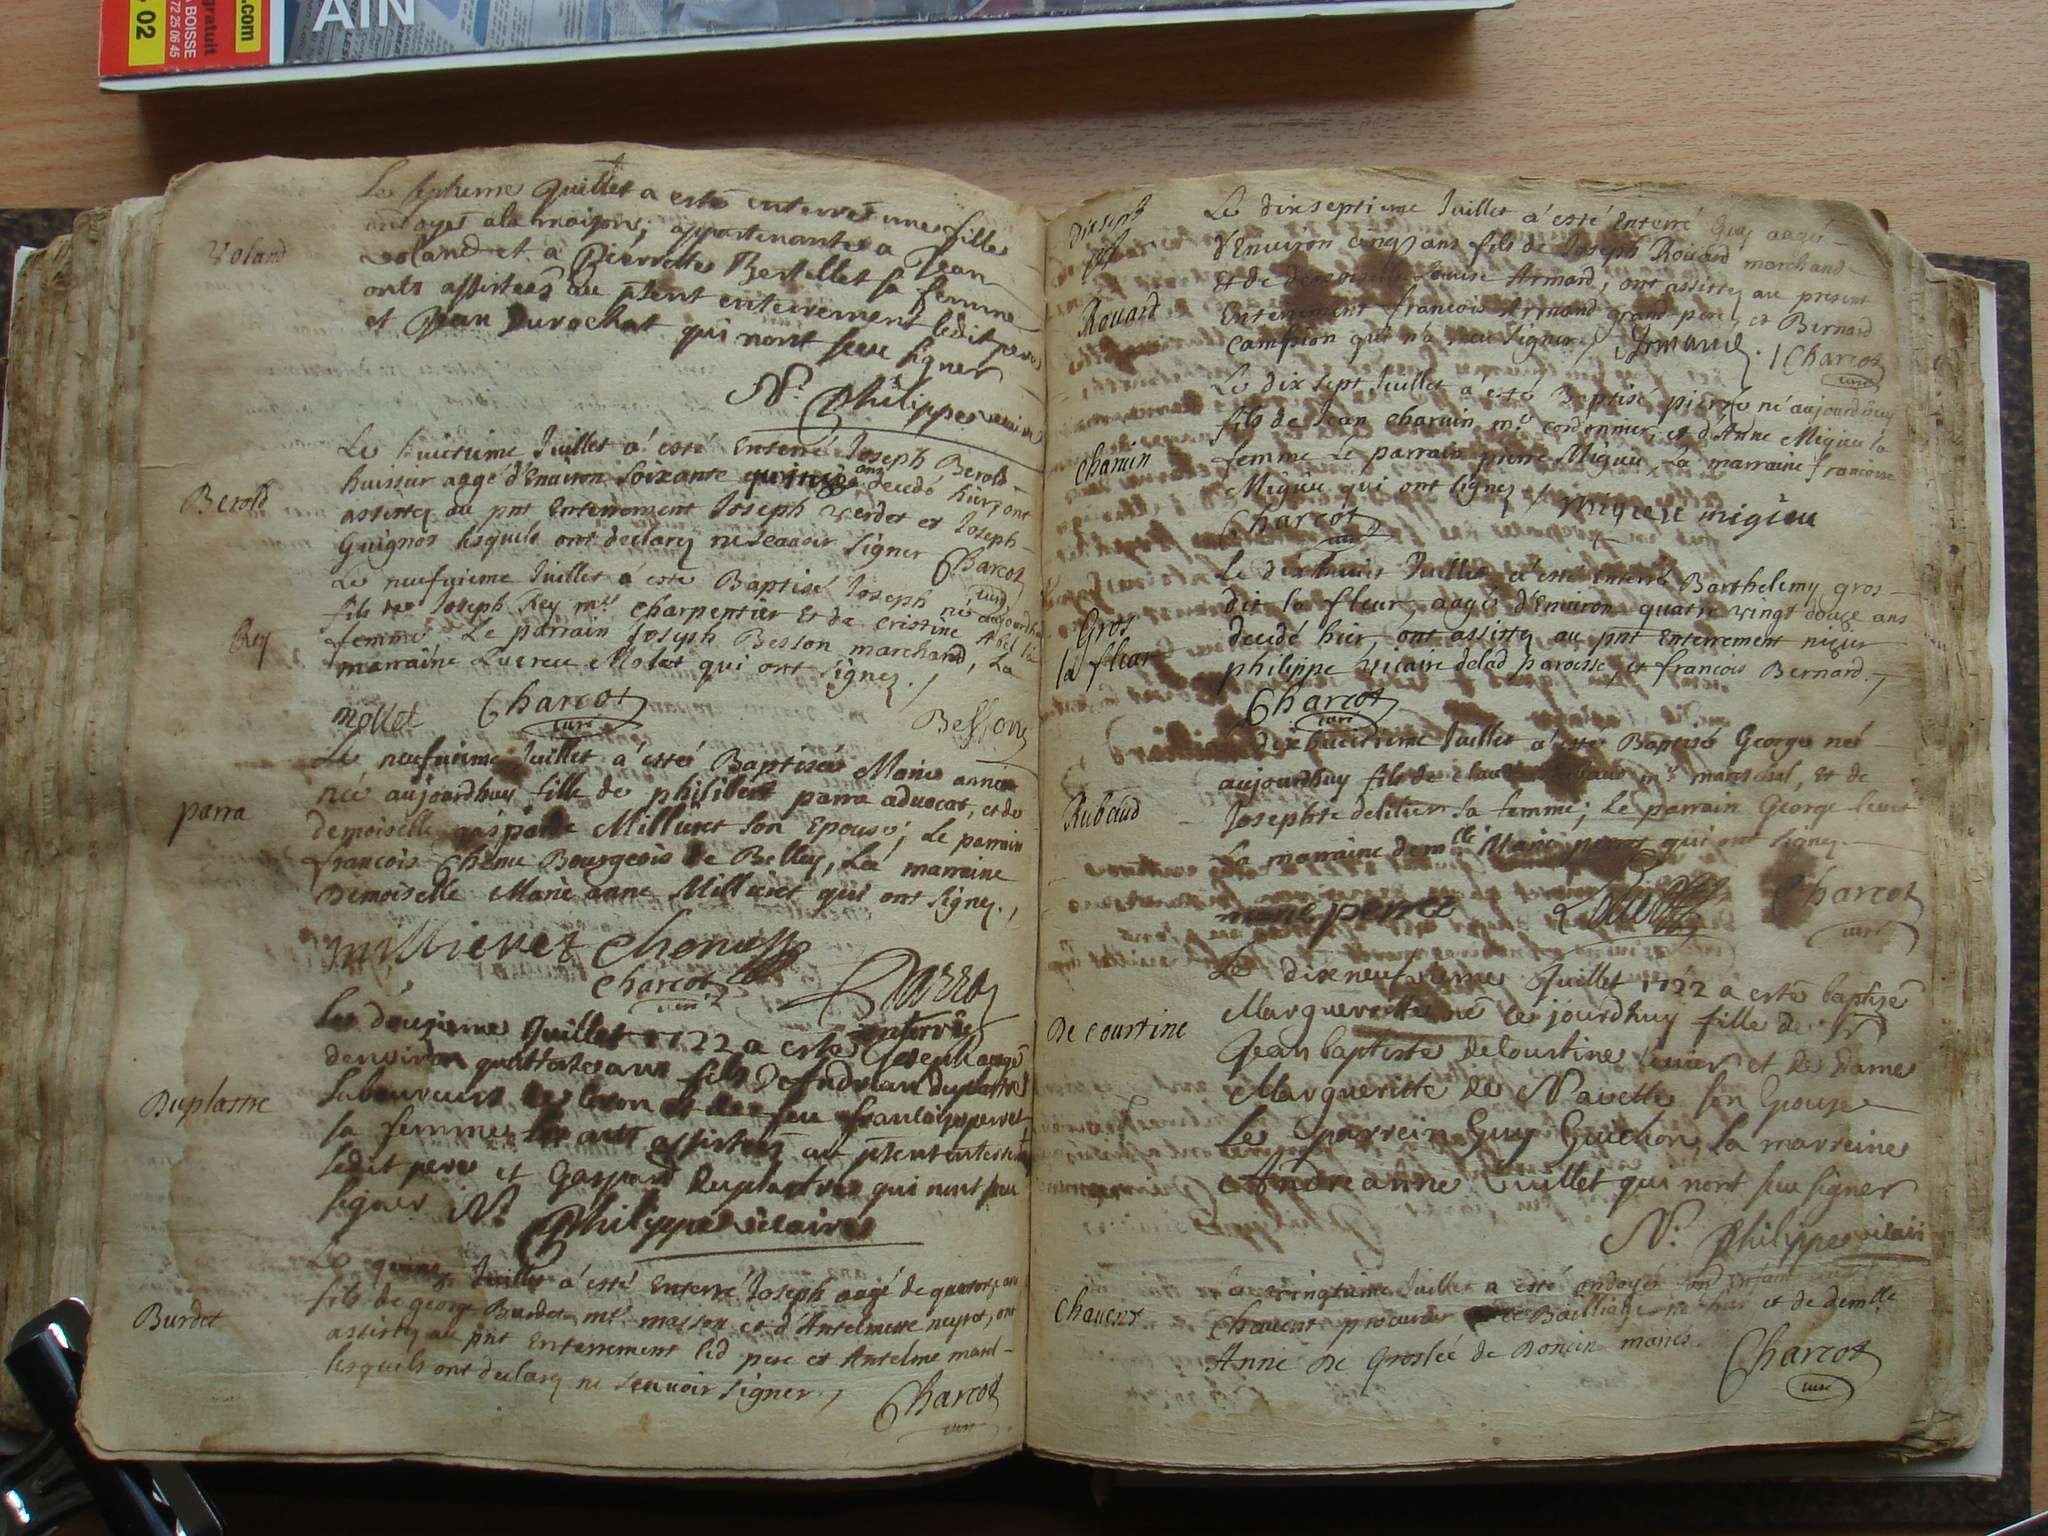 AIN
.com
gratuit
02
A BOISSE
72 25 06 45
Le septieme Juillet a esté enterreé une fille
ondoyeé a la maison, appartenante a Jean
Voland
voland et a Pierrette Bertillet sa femme
onts assisteés au pñent enterrement ledit pere
et Jean Durochat qui nont sceu signer
N. Philippe vicaire
Le huictieme Juillet á esté Enterré Joseph Berold
Berold
huissier aagé d'Environ soixante quinze ans decedé hier, ont
assistez au pnt Enterrement Joseph verdet et Joseph
Guignot lesquels ont declarez ne scavoir signer Charcot
curé
Le neufvieme Juillet á esté Baptisé Joseph né aujourdhuy
Rey
fils de Joseph Rey mtre charpentier Et de Cristine Abel sa
femme Le parrain Joseph Besson marchand, La
marraine Lucrece Molet qui ont signez./
mollet Charcot Besson
curé
Le neufvieme Juillet á esté Baptiseé Marie anne
parra
née aujourdhuy fille de philibert parra advocat, et de
demoiselle gasparde Millieret son Epouse; Le parrain
francois Chenu Bourgeois de Belley, La marraine
Demoiselle Marie anne Millieret qui ont signez.,
millieret Chenu
Charcot Parra
curé
Le douzieme Juillet 1722 a esté enterré Joseph aagé
denviron quattorze ans fils D'Andrean Duplastre
Duplastre
laboureur de Coron et de feu francoise perret
sa femme ont assisteés au pñent enterrement
ledit pere et Gaspard Duplastre qui nont sceu
signer N. Philippe vicaire
Le quinze Juillet á esté Enterré Joseph aagé de quatorze ans
Burdet
fils de george Burdet mtre masson et d'Antelmette neyret, ont
assistez au pnt Enterrement led pere et Antelme marel
lesquels ont declarez ne scavoir signer./ Charcot
curé
Dixsept
Le dixseptieme Juillet á esté Enterré Guy aagé
d'Environ cinq ans fils de Joseph Rouard marchand
et de demoiselle Louise Armand, ont assistez au present
Rouard
Enterrement francois Armand grand pere, et Bernard
Campion qui n'a sceu signer/ Armand. / Charcot
curé
Le dix sept Juillet á esté Baptisé pierre né aujourdhuy
fils de Jean charvin mtre cordonnier, et d'Anne Migieu sa
Charvin
femme Le parrain pierre Migieu, La marraine francoise
Migieu qui ont signez / migieu migieu
Charcot
curé
Le dixhuit Juillet á esté Enterré Barthelemy gros
dit la fleur aagé d'Environ quatre vingt douze ans
Gros
la fleur
decedé hier, ont assistez au pnt Enterrement mesre
philippe vicaire de lad paroisse, et francois Bernard./
Charcot
curé
Le dixhuictieme Juillet á esté Baptisé George né
aujourdhuy fils de claude Rubaud mtre mareschal, Et de
Rubaud
Josephte delilier sa femme; Le parrain George
La marraine demlle Marie perret qui ont signez
marie perret Charcot
curé
Le dixneufvieme Juillet 1722 a esté baptiseé
Margueritte neé ce jourdhuy fille de Sr
De courtine
Jean baptiste Decourtine et de Dame
Margueritte de Navette son Epouse
Le parrein Guy Guichon, la marreine
Andreanne Vuillet qui nont sceu signer
N. Philippe vicaire
Le vingtieme Juillet a esté ondoyé
Chavent
Chavent procureur Bailliage et de demlle
Anne De Groslée de Doncin mariés. Charcot
curé